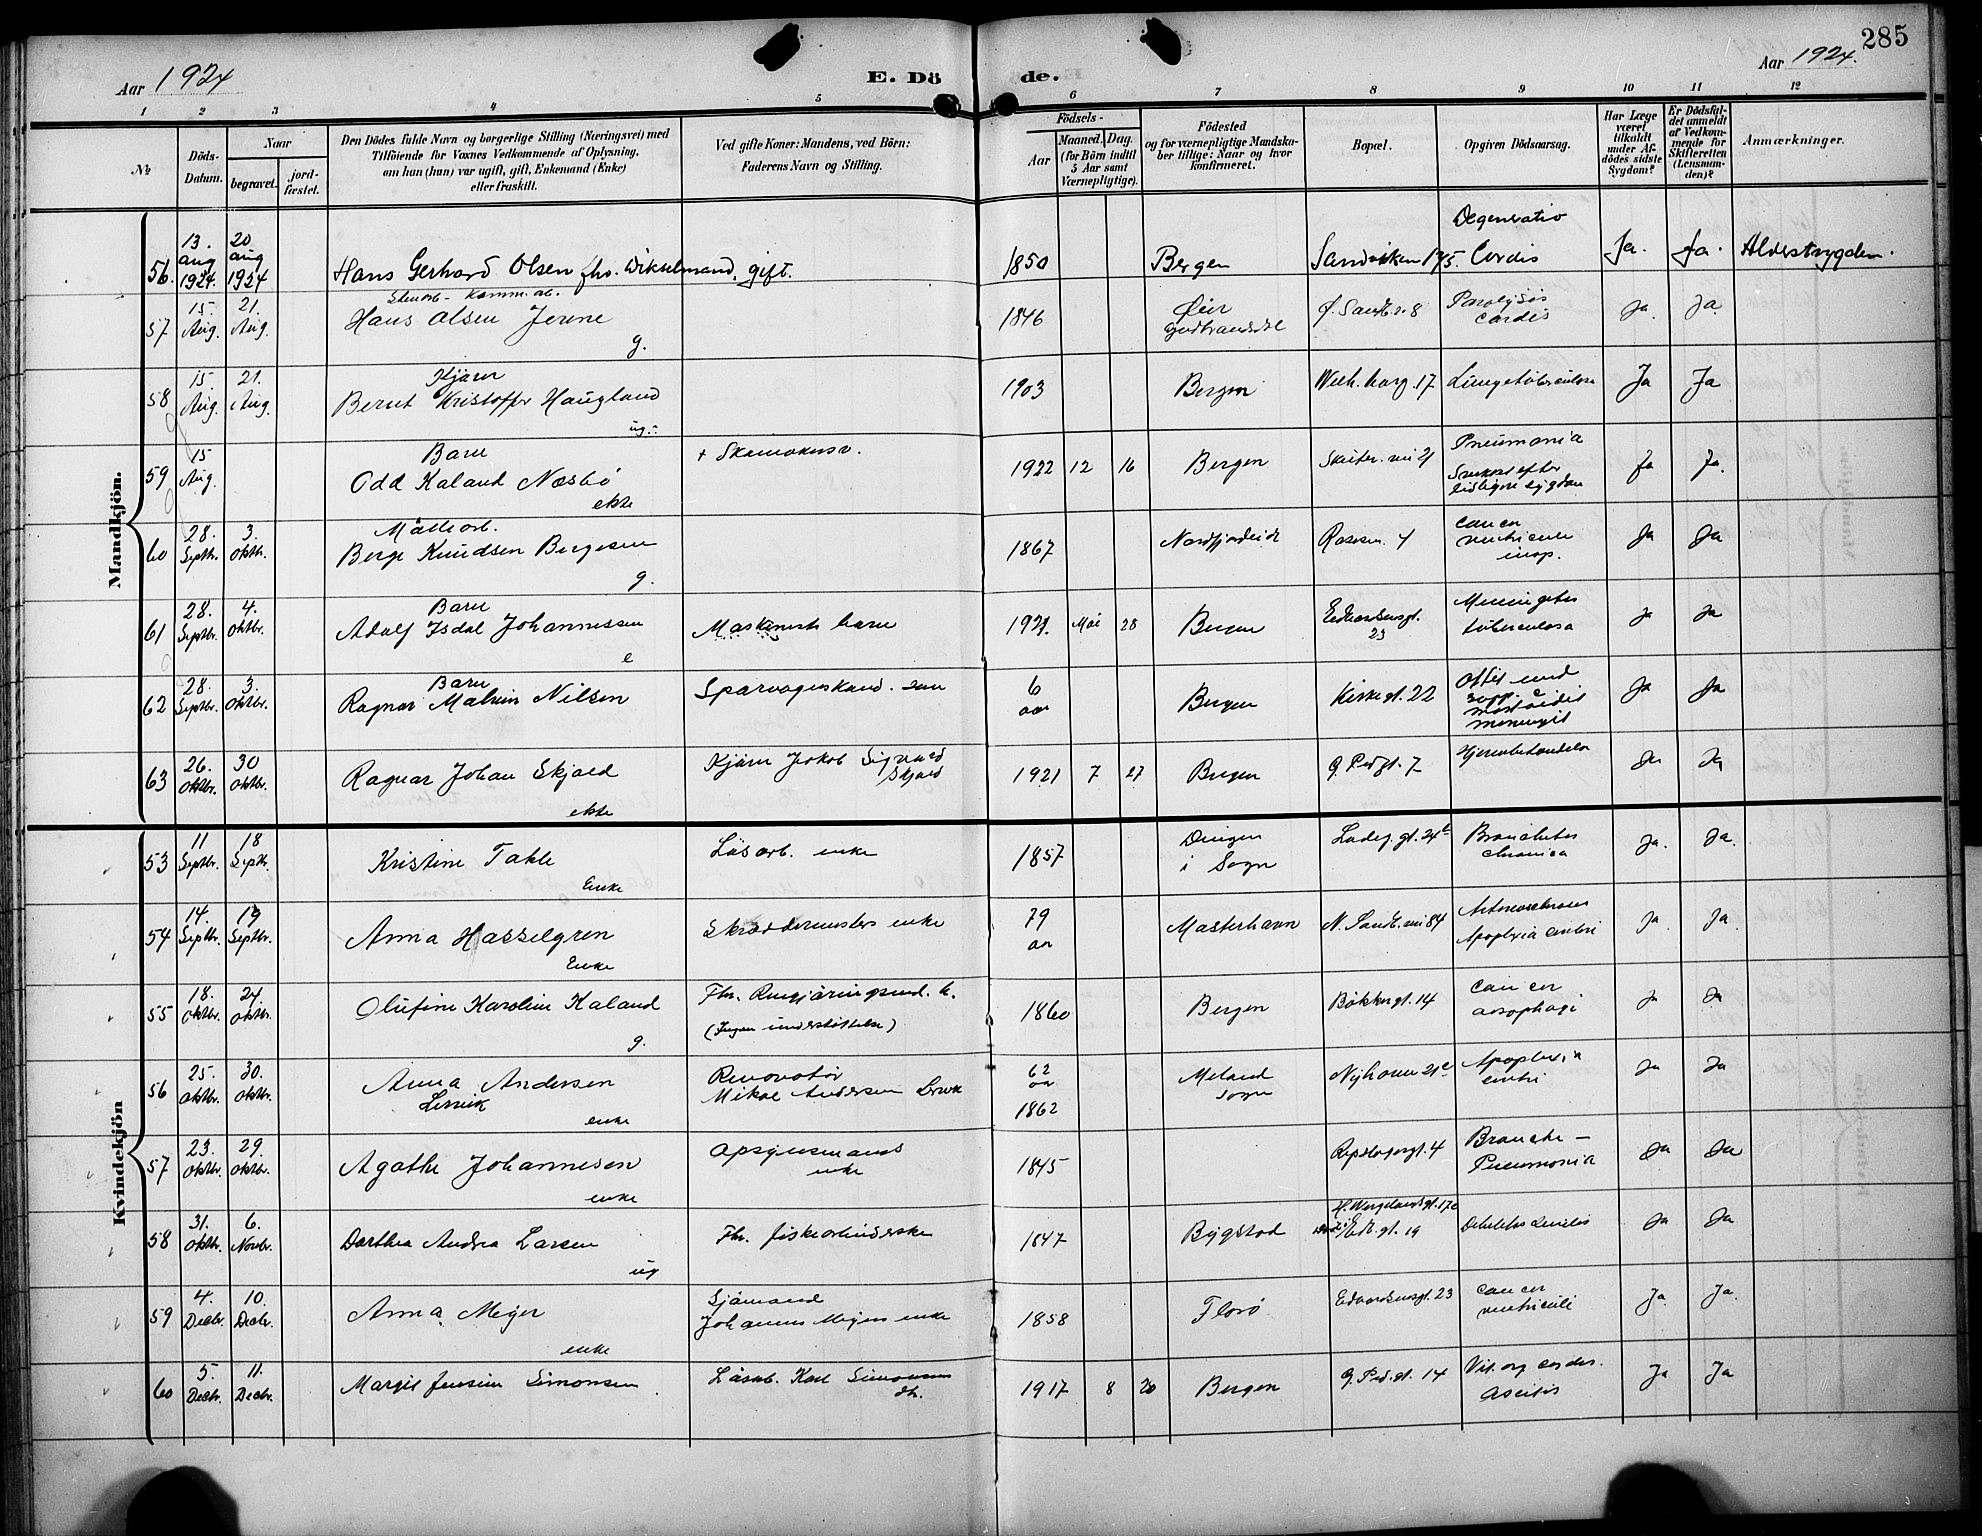 285
Aar 1924
E. Dö
de.
Aar 1924.
1 2 3 4 5 6 7 8 9 10 11 12
No
Döds-Datum.
Naar
begravet.
jord-fæstet.
Den Dödes fulde Navn og borgerlige Stilling (Næringsvei) med
Tilföiende for Voxnes Vedkommende af Oplysning,
om hun (han) var ugift, gift, Enkemand (Enke)
eller fraskilt.
Ved gifte Koner: Mandens, ved Börn:
Faderens Navn og Stilling.
Födsels-
Aar
Maaned. Dag.
(for Börn indtil
5 Aar samt
Værnepligtige).
Födested
og for værnepligtige Mandska-
ber tillige: Naar og hvor
konfirmeret.
Bopæl.
Opgiven Dödsaarsag.
Har Læge
været
tilkaldt
under Af-
dödes sidste
Sygdom?
Er Dödsfal-
det anmeldt
af Vedkom-
mende for
Skifteretten
(Lensman-
den)?
Anmærkninger.
Mandkjön.
56. 13. aug 1924. 20 aug 1924 Hans Gerhard Olsen fhv. gift. 1850 Bergen Sandviken 175. Degeneratio Cordis Ja. Ja. Alderstrygden.
57 15. Aug. 21. Aug. Hans Olsen g. 1846 Øier Gudbrandsdl Paralysis cordis Ja. Ja.
58 15. Aug. 21. Aug. Bernt Kristoffer Haugland ug. 1903 Bergen 17 Lungetuberculose Ja Ja
59 15 Aug. Barn Odd Kaland Næsbø ekte 1922 12 16 Bergen Pneumonia Ja Ja.
60 28. Septbr. 3. Oktbr. Berge Knudsen Bergesen g. 1867 Nordfjordeid cancer ventriculi inop. Ja Ja
61 28. Septbr. 4. Oktbr. Barn Adolf Isdal Johannessen e Maskinists barn 1921. Mai 28 Bergen Edvardsensgt. 23 Meningitis tuberculosa Ja Ja
62 28. Septbr. 3. Oktbr. Barn Ragnar Nilsen Sporvognskond. søn 6 aar Bergen Kirkegt. 22 Otitis med supp. c mastoidit meningit Ja Ja
63 26. Oktbr. 30 Oktbr. Ragnar Johan Skjold ekte Jakob Sigvard Skjold 1921 7 27 Bergen 7 Ja Ja
Kvindekjön
53 11 Septbr. 18 Septbr. Kristine Takle Enke Løsarb. enke 1857 i Sogn Ladeg. gt. 24 Bronchitis chronica Ja. Ja.
54 14. Septbr. 19 Septbr. Anna Hasselgren Enke Skræddermesters enke 79 aar N. Sandv. vei 84 Arteriosclerosis Apoplexia cerebri Ja Ja.
55 18. Oktbr. 24. Oktbr. Olufine Karoline Kaland g. (Ingen understøttelse) 1860 Bergen Bøkkergt. 14 cancer oesophagi Ja Ja
56 25. Oktbr. 30. Oktbr. Anna Andersen enke Renovatør Mikal Andersen 62 aar 1862 Meland sogn Nyhavn 21 Apoplexia cerebri Ja Ja
57 23. Oktbr. 29. Oktbr. Agathe Johannesen enke Opsynsmands enke 1845 Repslagergt. 4 Broncho-Pneumonia Ja Ja
58 31. Oktbr. 6. Novbr. Dorthea Andrea Larsen ug Fhv. fiskearbeiderske 1847 Bygstad H. Wergelandsgt. 17 gt. 19 Ja Ja
59 4. Decbr. 10. Decbr. Anna Meyer enke Sjømand Johannes Meyers enke 1858 Florø Edvardsensgt. 23 cancer ventriculi Ja. Ja.
60 5. Decbr. 11. Decbr. Margit Jensine Simonsen Løsarb. Karl Simonsens dtr. 1917 8 20 Bergen 14 Vit. org cordis. Ascites Ja Ja